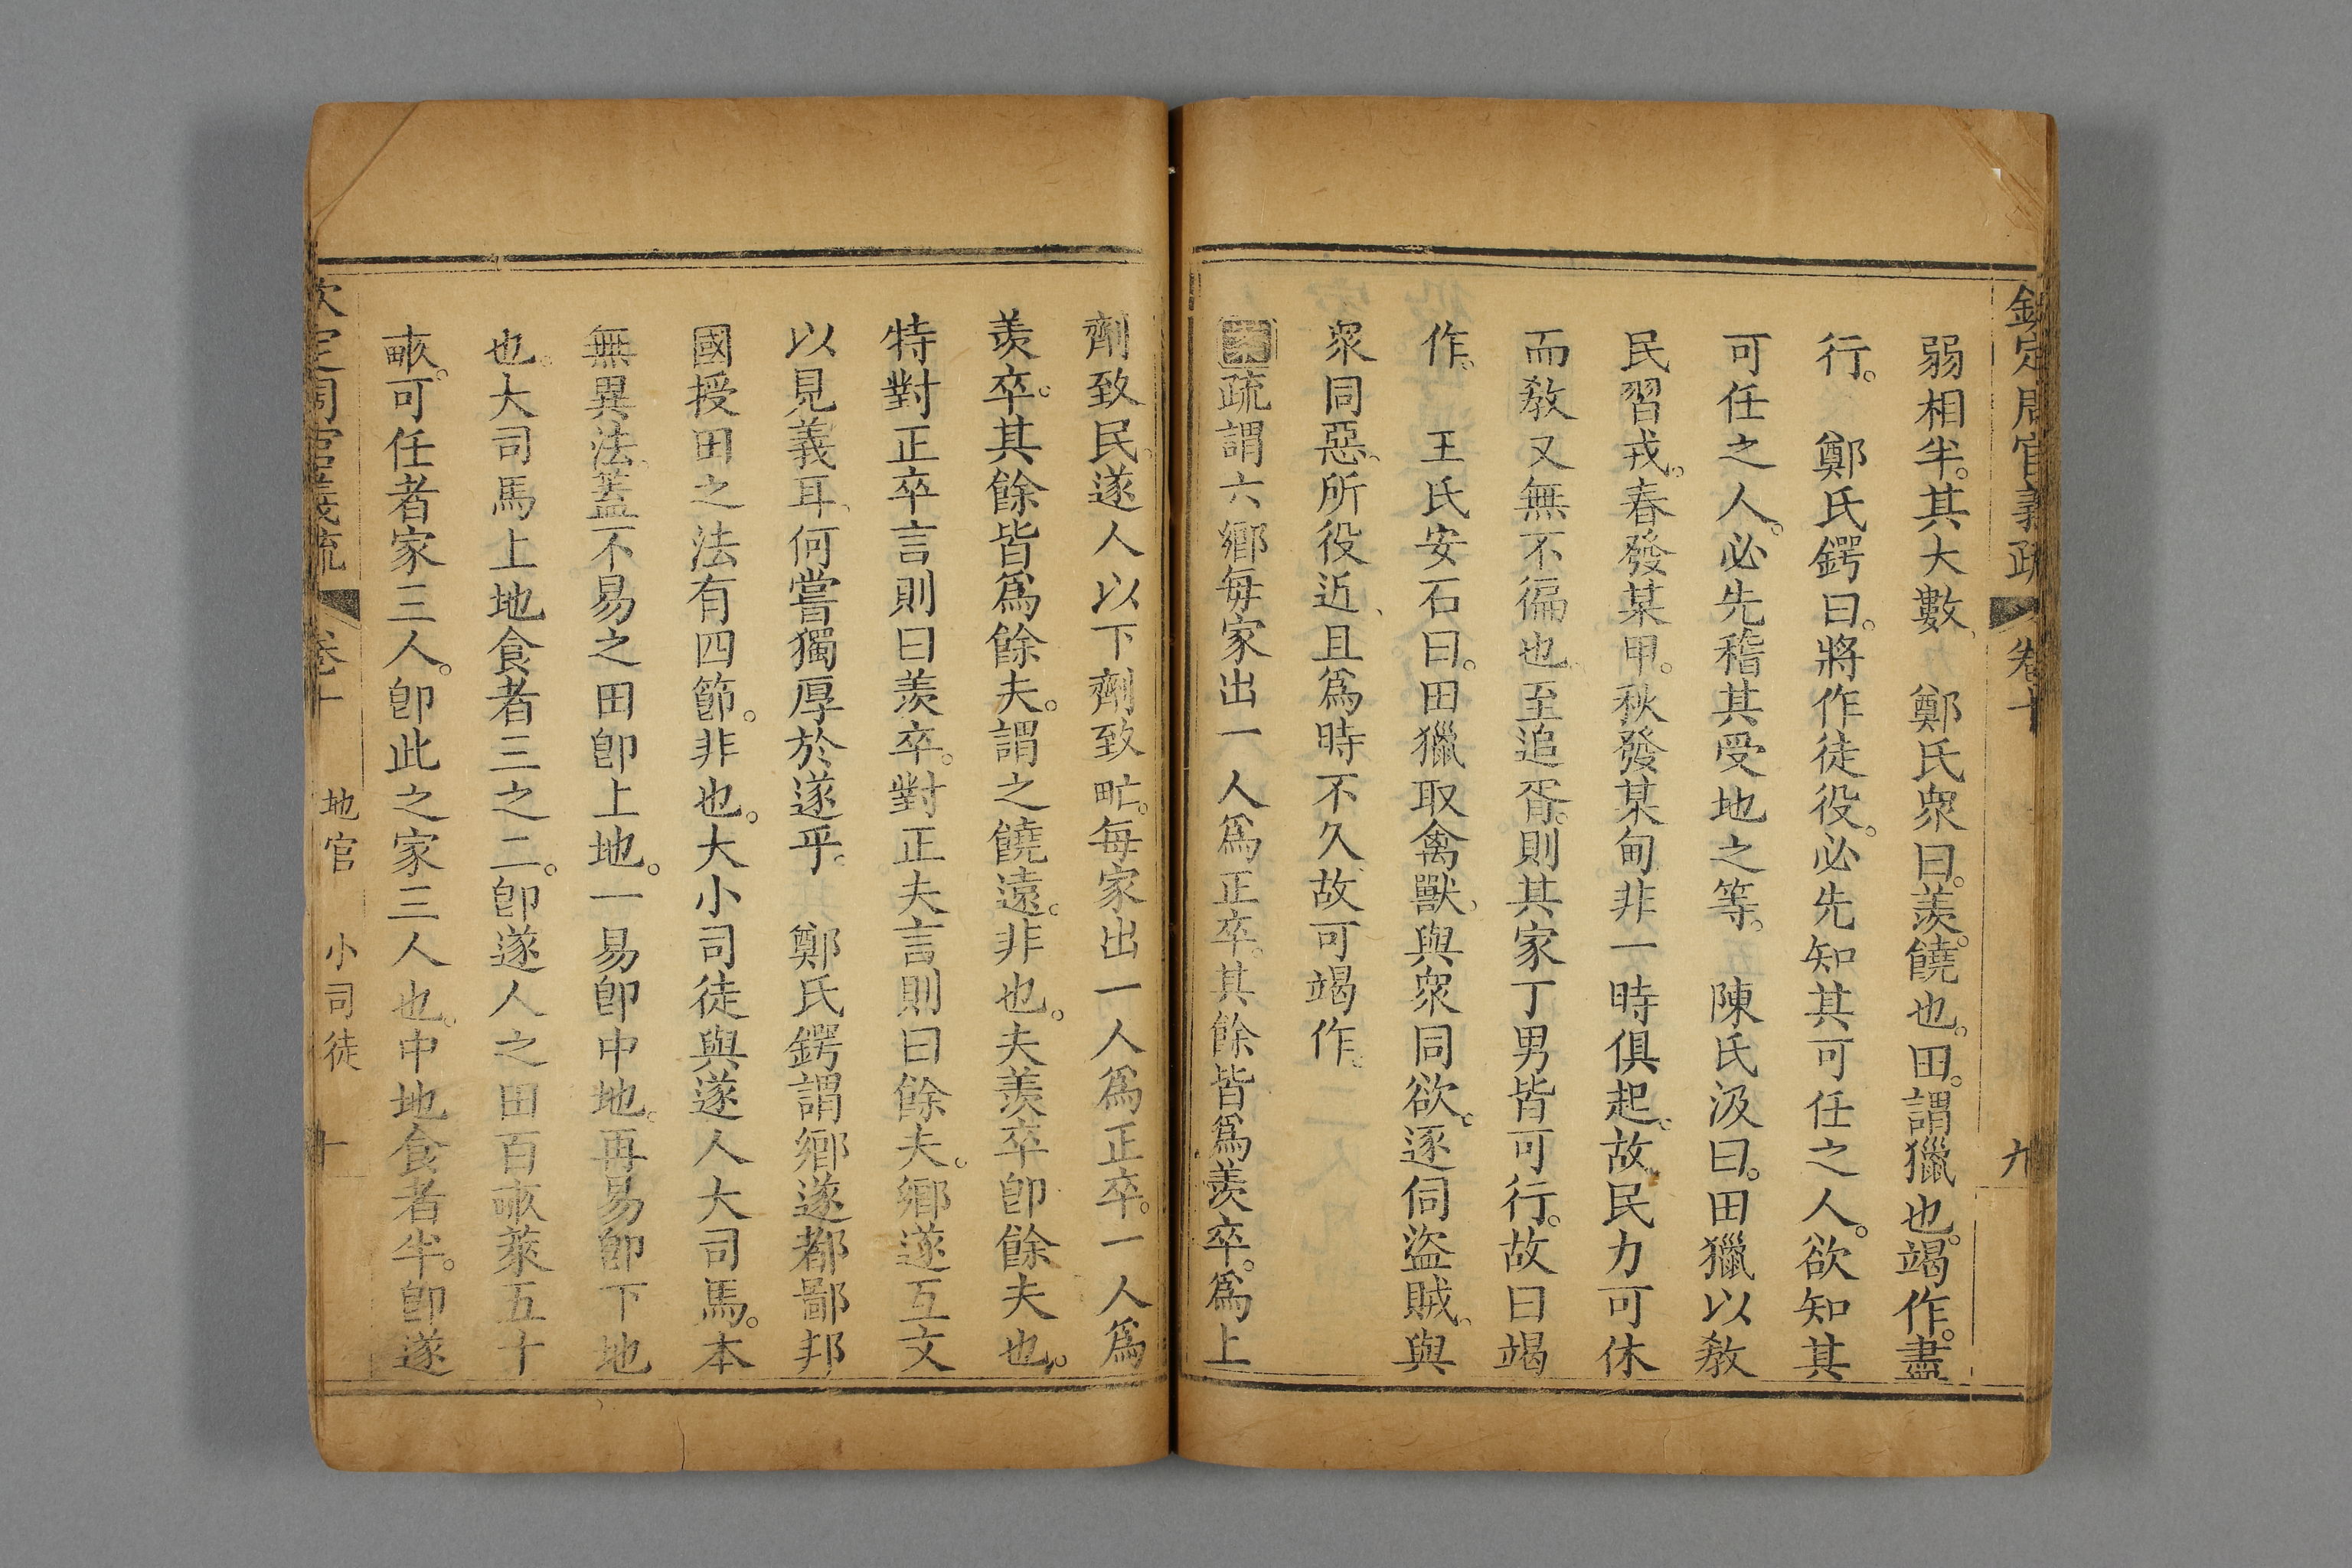 欽定周官義疏 卷十 九
弱相半。其大數、 鄭氏衆曰。羨。饒也。田。謂獵也。竭作。盡
行。 鄭氏鍔曰。將作徒役。必先知其可任之人。欲知其
可任之人。必先稽其受地之等。 陳氏汲曰。田獵以敎
民習戎。春發某甲。秋發某甸。非一時俱起。故民力可休
而敎又無不徧也。至追胥。則其家丁男皆可行。故曰竭
作。 王氏安石曰。田獵取禽獸、與衆同欲。逐伺盜賊、與
衆同惡、所役近、且爲時不久、故可竭作。
疏謂六鄉每家出一人爲正卒。其餘皆爲羨卒。爲上
劑致民。遂人以下劑致甿。每家出一人爲正卒。一人爲
羨卒。其餘皆爲餘夫。謂之饒遠。非也。夫羨卒卽餘夫也。
特對正卒言則曰羨卒。對正夫言則曰餘夫。鄉遂互文
以見義耳、何嘗獨厚於遂乎。 鄭氏鍔謂鄉遂都鄙邦
國授田之法有四節。非也。大小司徒與遂人大司馬。本
無異法、蓋不易之田卽上地。一易卽中地。再易卽下地
也。大司馬上地食者三之二。卽遂人之田百畮萊五十
畮。可任者家三人。卽此之家三人也。中地食者半。卽遂
欽定周官義疏 卷十 地官 小司徒 十